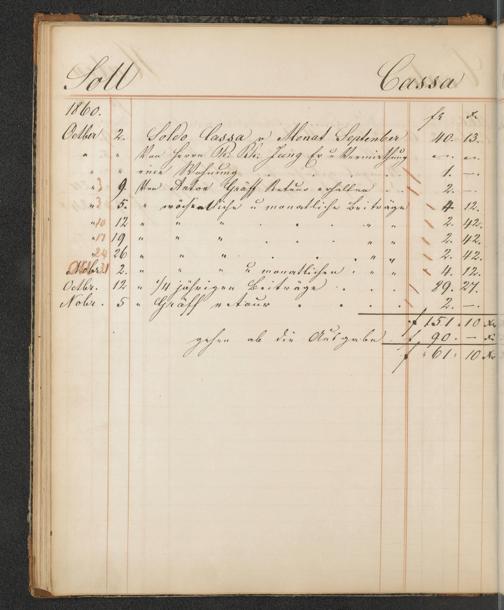 Soll Cassa
1860. fl x
Octber 2. Soldo Cassa v Monat September 40. 13.
" " Von Herrn Ph. Jung für Vermiethung
" " eine Wohnung 1. —
" 9. Von Anton Gräff Retour erhalten 2. —
" 5. " wöchentliche u monatliche Beiträge 4. 12.
" 10 12 " " " " " 2. 42.
" 17 19 " " " " " 2. 42.
" 24 26 " " " " " 2. 42.
Nobr. 31 2. " " " u monatlichen " " 4. 12.
Octbr. 12 " 1/4 jährigen Beiträge 29. 27.
Nobr. 5 " Gräff retour 2. —
f 151. 10
gehen ab die Ausgabe f 90. —
f 61. 10